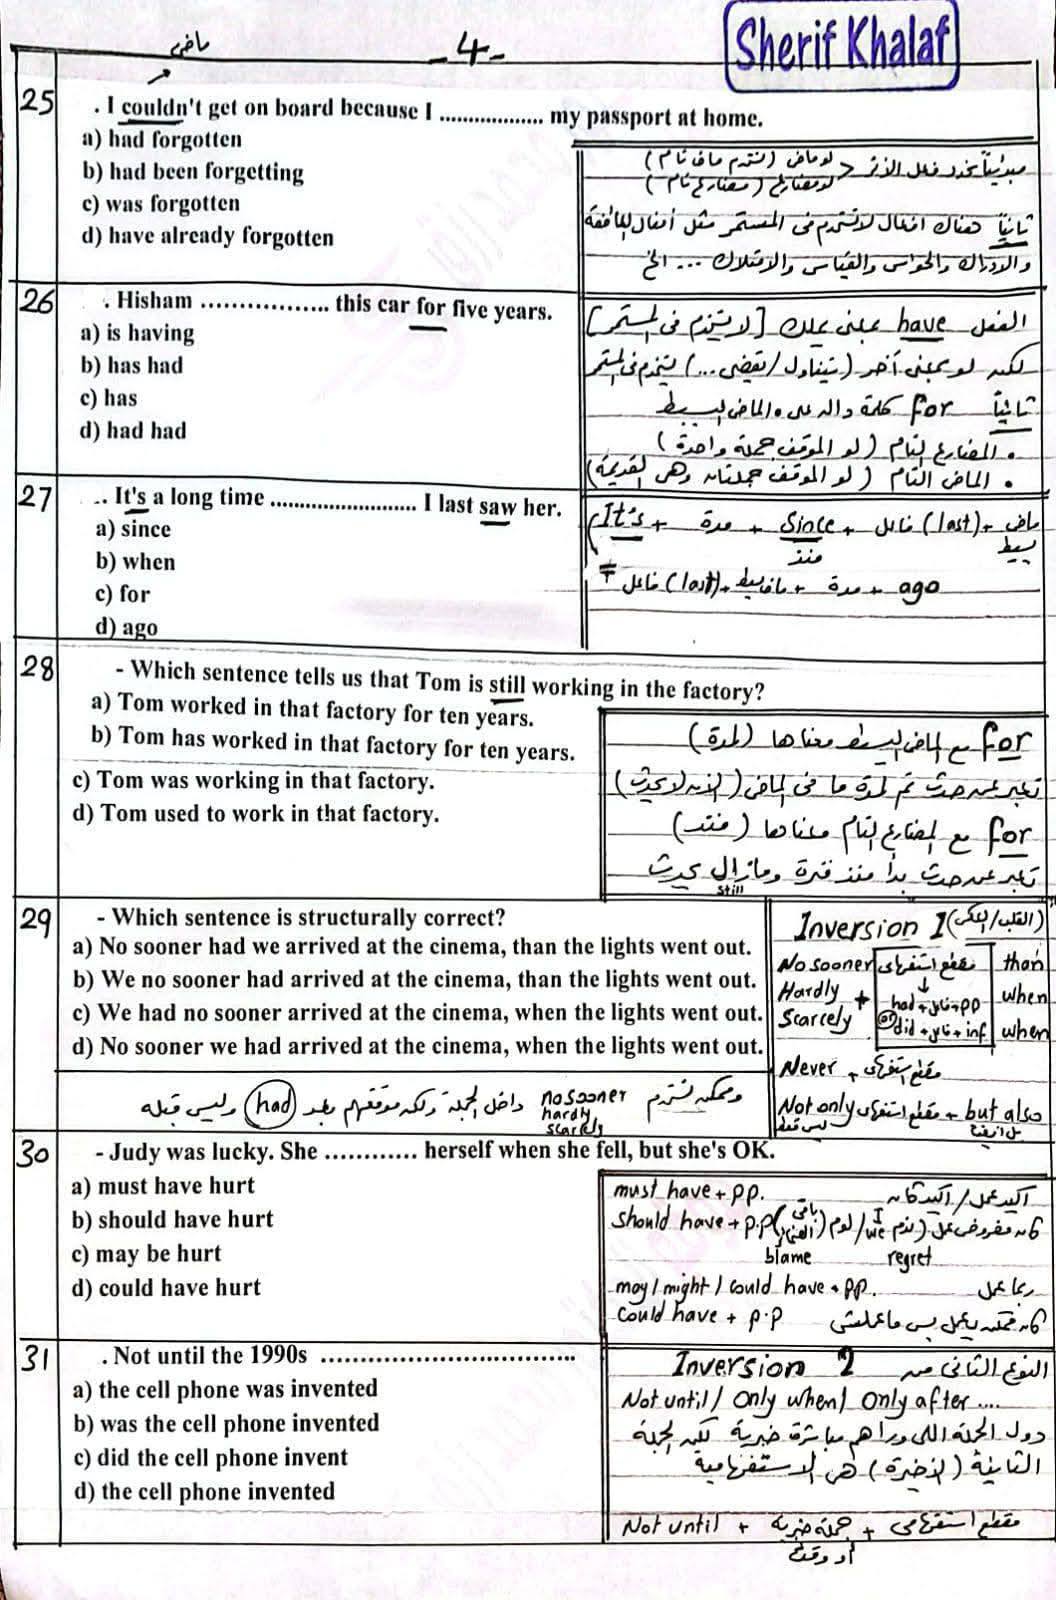 Sherif Khalaf
-4-
ماضى
25
. I couldn't get on board because I .................. my passport at home.
a) had forgotten
b) had been forgetting
c) was forgotten
d) have already forgotten
مبدئياً نحدد فعل الأثر < لو ماض (نستخدم ماض تام)
لو مضارع (مضارع تام)
ثانياً هناك افعال لا تستخدم فى المستمر مثل أفعال العاطفة
والادراك والحواس والقياس والامتلاك ... الخ
26
. Hisham ................. this car for five years.
a) is having
b) has had
c) has
d) had had
الفعل have بمعنى يملك [لا يستخدم فى المستمر]
لكنه لو بمعنى آخر (يتناول / يقضى ...) يستخدم فى المستمر
ثانياً for كلمة داله على • الماض البسيط
• المضارع التام (لو الموقف جملة واحدة)
• الماض التام (لو الموقف جملتان وهى القديمة)
27
.. It's a long time ......................... I last saw her.
a) since
b) when
c) for
d) ago
It's + مدة + since + فاعل (last) + ماض بسيط
منذ
فاعل (last) + ماض بسيط + مدة + ago
28
- Which sentence tells us that Tom is still working in the factory?
a) Tom worked in that factory for ten years.
b) Tom has worked in that factory for ten years.
c) Tom was working in that factory.
d) Tom used to work in that factory.
for مع الماض البسيط معناها (لمدة)
تعبر عن حدث تم لمدة ما فى الماض (الآن لا يحدث)
for مع المضارع التام معناها (منذ)
تعبر عن حدث بدأ منذ فترة ومازال يحدث
still
29
- Which sentence is structurally correct?
a) No sooner had we arrived at the cinema, than the lights went out.
b) We no sooner had arrived at the cinema, than the lights went out.
c) We had no sooner arrived at the cinema, when the lights went out.
d) No sooner we had arrived at the cinema, when the lights went out.
Inversion 1 (القلب / العكس)
No sooner
Hardly
Scarcely
+
مقطع استفهامى
↓
had + فاعل + pp
or did + فاعل + inf
than
when
when
Never + مقطع استفهامى
Not only + مقطع استفهامى + but also
ليس فقط
بل أيضاً
وممكن نستخدم no sooner داخل الجملة ولكن موقعهم بعد (had) وليس قبله
hardly
scarcely
30
- Judy was lucky. She ............ herself when she fell, but she's OK.
a) must have hurt
b) should have hurt
c) may be hurt
d) could have hurt
must have + pp. اكيد عمل / اكيد كان
should have + p.p كان مفروض عمل (ندم I we / لوم باقى الضمائر)
blame regret
may / might / could have + pp. ربما عمل
could have + p.p كان ممكن يعمل بس ماعملش
31
. Not until the 1990s ..................................
a) the cell phone was invented
b) was the cell phone invented
c) did the cell phone invent
d) the cell phone invented
النوع الثانى من Inversion 2
Not until / Only when / Only after ....
دول الجملة اللى وراهم مباشرة خبرية لكن الجملة
الثانية (الاخيرة) هى الاستفهامية
Not until + جملة خبرية + مقطع استفهامى
أو وقت